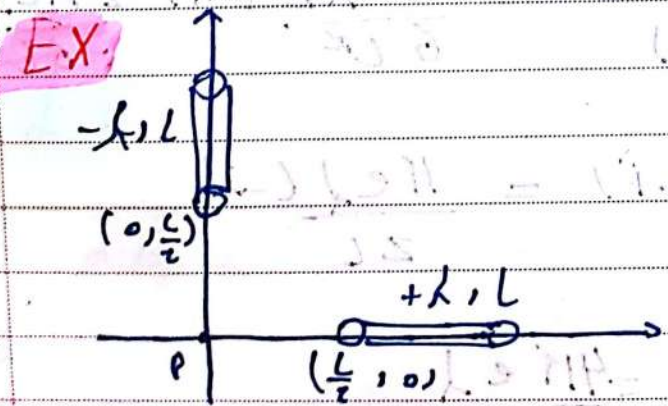 EX
-λ, L
(0, L/2)
+λ, L
P
(L/2, 0)